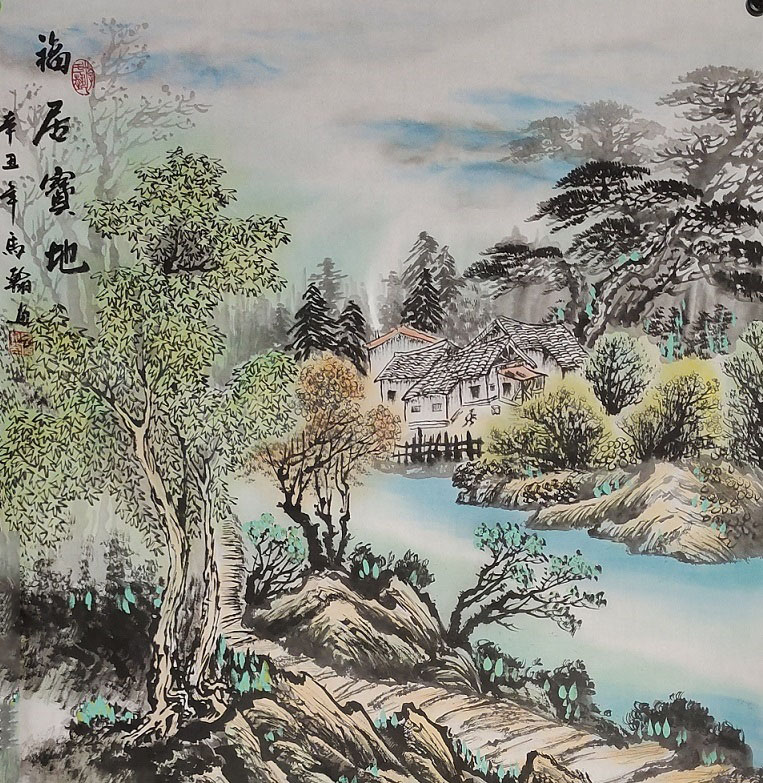 福居寳地
辛丑年馬翰畫